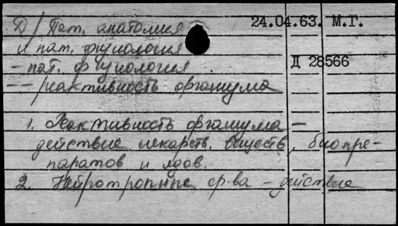 Д/ Пат. анатомия
и пат. физиология
24.04.63. М.Г.
- пат. физиология.
Д 28566
-- реактивность организма
1. Реактивность организма -
действие лекарств. веществ, биопре-
паратов и ядов.
2. Нейротропные ср-ва - действие